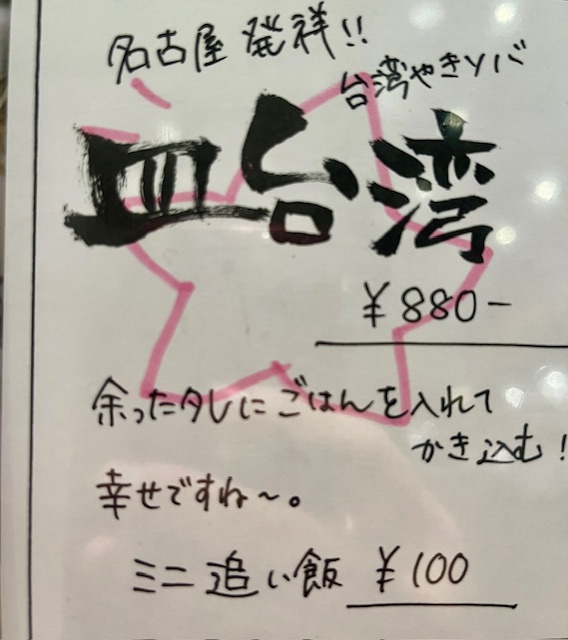 名古屋発祥!!
台湾やきソバ
皿台湾
¥880-
余ったタレにごはんを入れて
かき込む!
幸せですね〜。
ミニ追い飯 ¥100